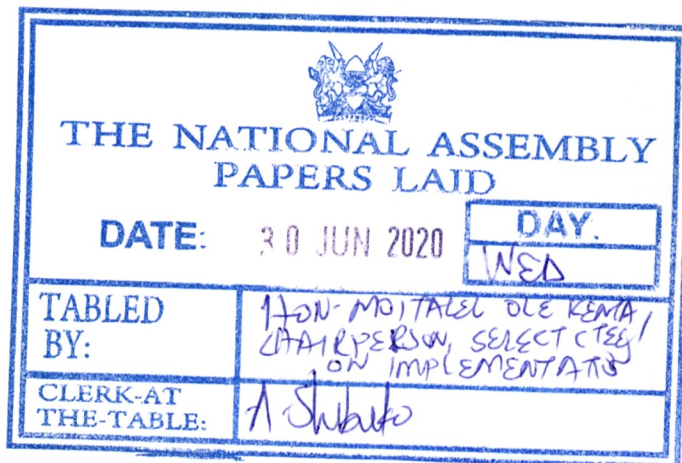 THE NATIONAL ASSEMBLY
PAPERS LAID
DATE: 30 JUN 2020
DAY.
WED
TABLED BY:
HON. MOITALEL OLE KENTA,
CHAIRPERSON, SELECT CTEE
ON IMPLEMENTATN
CLERK-AT THE-TABLE:
A. Shibuko